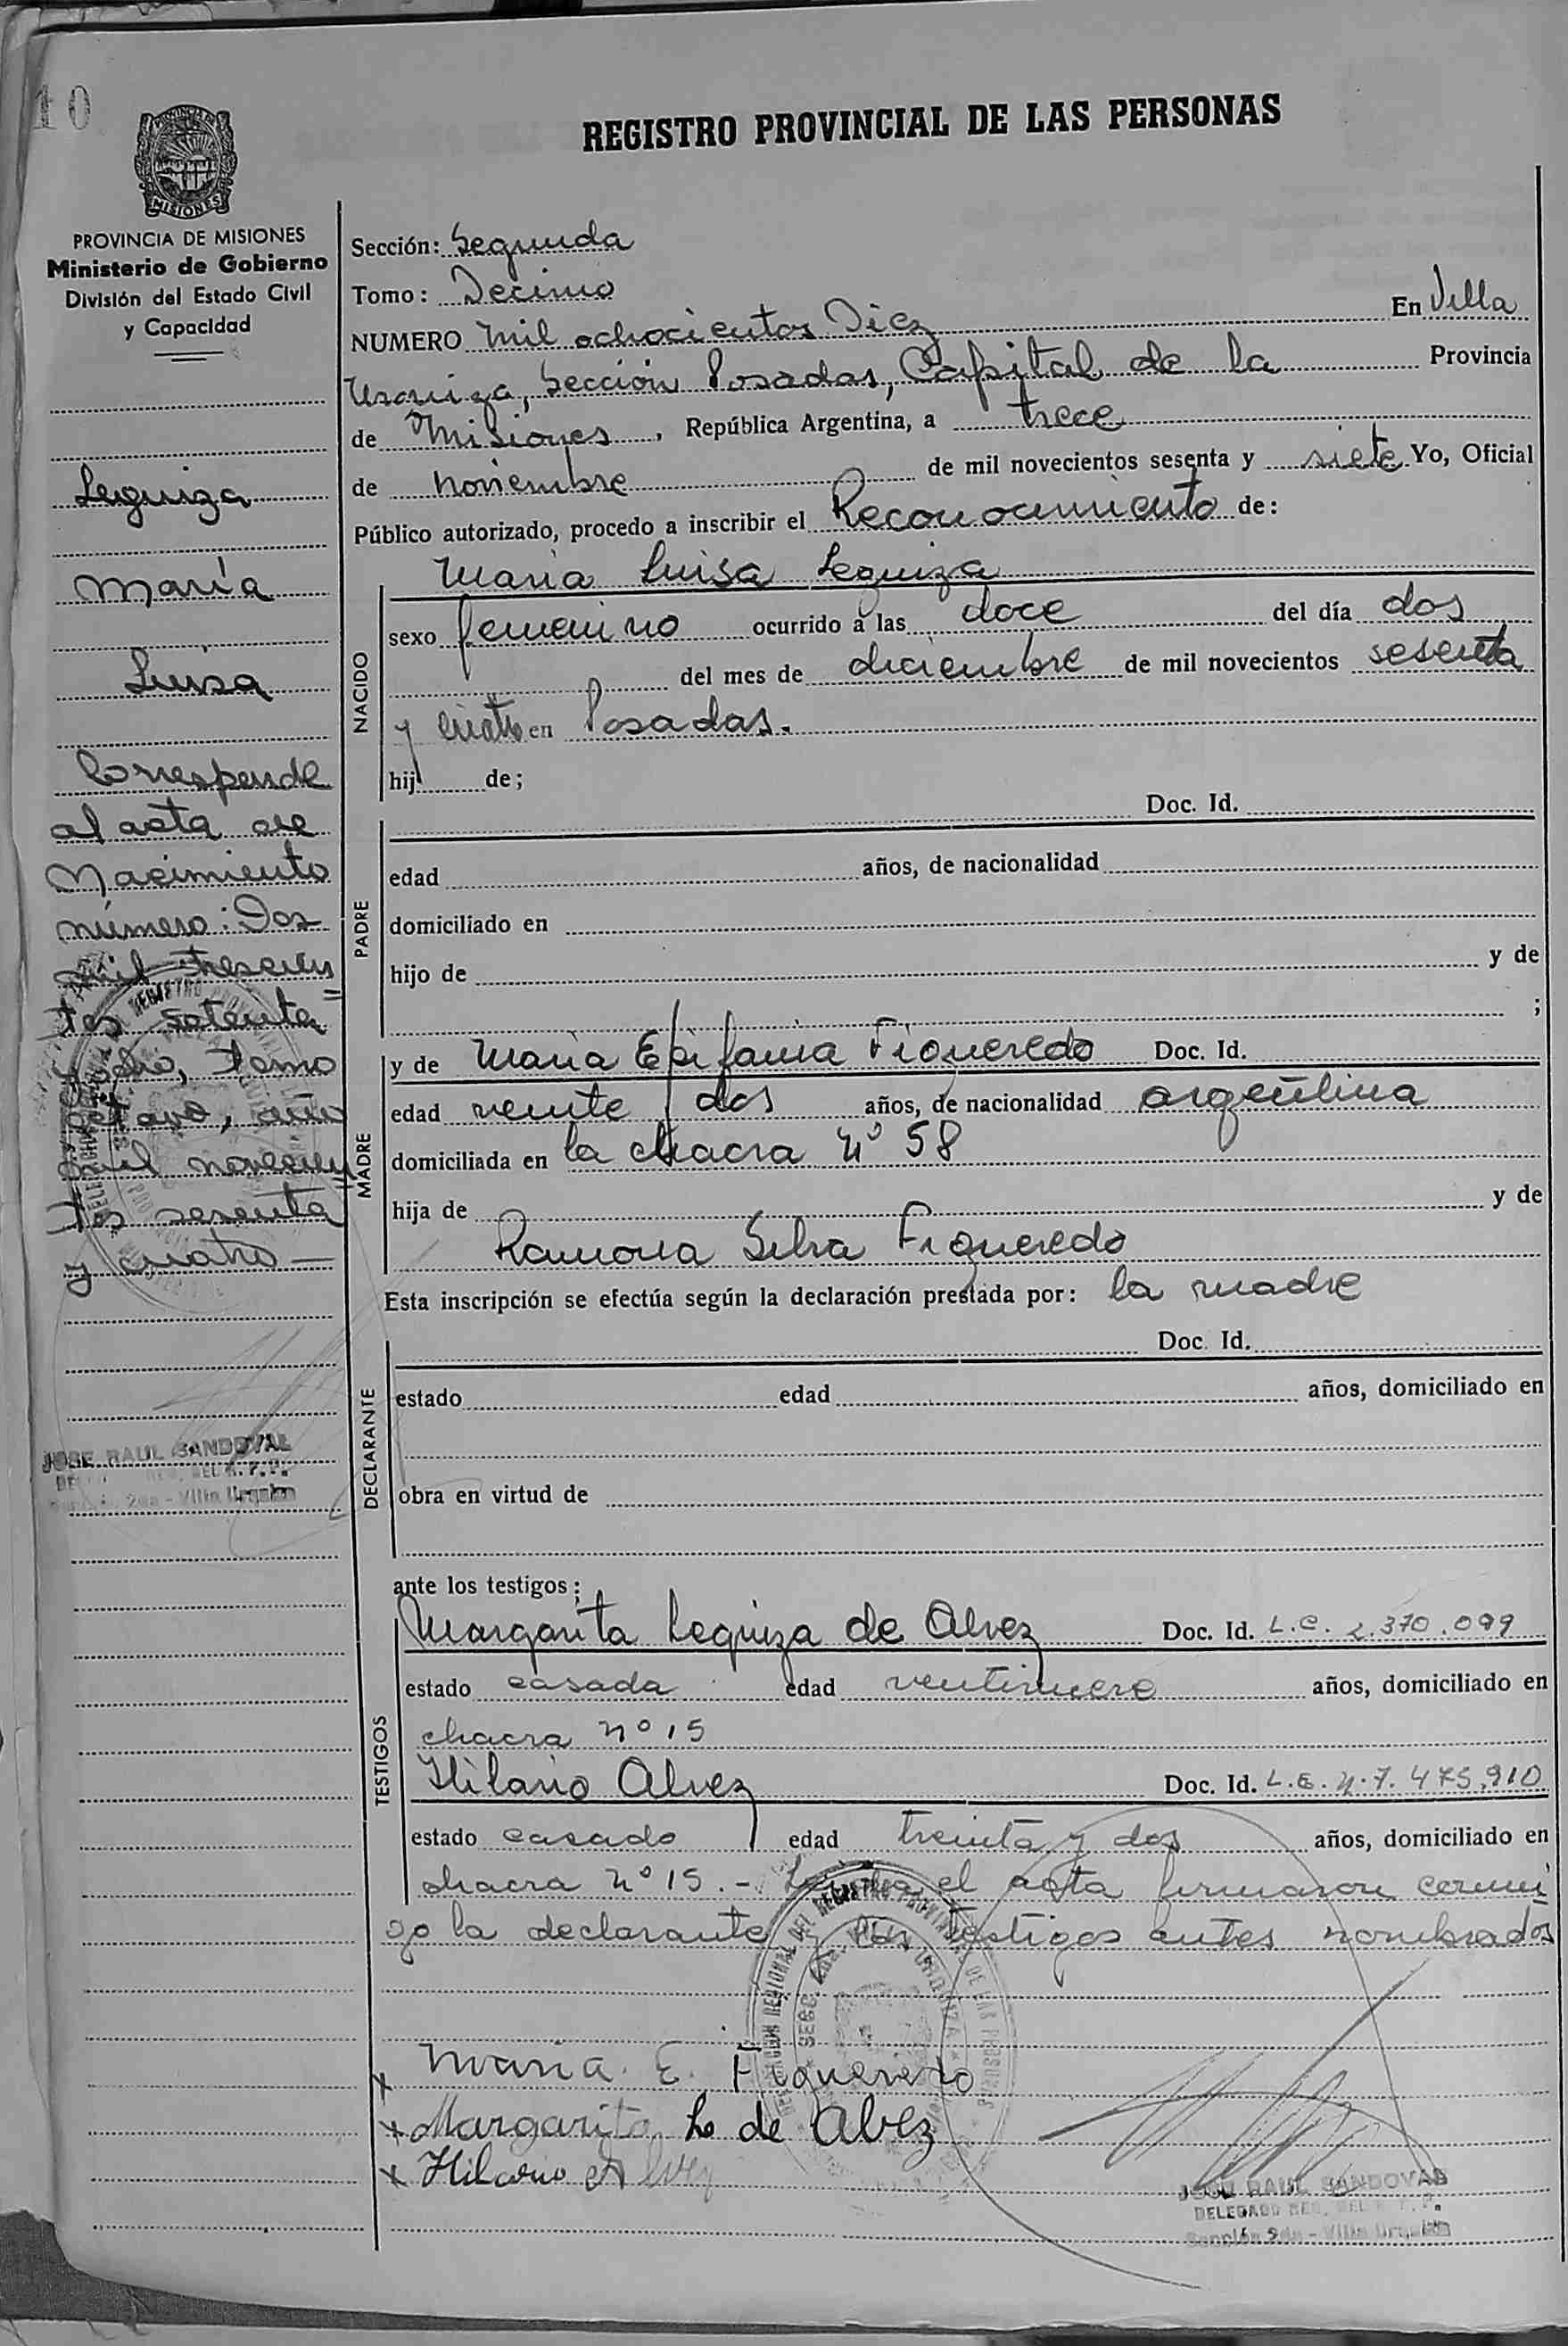 10
MISIONES
PROVINCIA DE MISIONES
Ministerio de Gobierno
División del Estado Civil
y Capacidad
Leguiza
María
Luisa
Corresponde
al acta de
Nacimiento
número: Dos
mil trescien
tos setenta
y ocho, tomo
octavo, año
mil novecien
tos sesenta
y cuatro
JOSE RAUL SANDOVAL
2da - Villa Urquiza
REGISTRO PROVINCIAL DE LAS PERSONAS
Sección: Segunda
Tomo: Decimo
NUMERO Mil ochocientos Diez En Villa
Urquiza, Sección Posadas, Capital de la Provincia
de Misiones, República Argentina, a trece
de noviembre de mil novecientos sesenta y siete Yo, Oficial
Público autorizado, procedo a inscribir el Reconocimiento de:
NACIDO
Maria Luisa Leguiza
sexo femenino ocurrido a las doce del día dos
del mes de diciembre de mil novecientos sesenta
y cuatro en Posadas.
hij de;
PADRE
Doc. Id.
edad años, de nacionalidad
domiciliado en
hijo de y de
;
MADRE
y de Maria Epifania Figueredo Doc. Id.
edad veinte dos años, de nacionalidad argentina
domiciliada en la chacra Nº 58
hija de y de
Ramona Silva Figueredo
Esta inscripción se efectúa según la declaración prestada por: la madre
DECLARANTE
Doc. Id.
estado edad años, domiciliado en
obra en virtud de
ante los testigos:
TESTIGOS
Margarita Leguiza de Alvez Doc. Id. L.C. 2.370.099
estado casada edad ventinueve años, domiciliado en
chacra nº 15
Hilario Alvez Doc. Id. L.E. N. 7.475.910
estado casado edad treinta y dos años, domiciliado en
chacra nº 15.- Leida el acta firmaron conmi
go la declarante y los testigos antes nombrados
x Maria. E. Figueredo
x Margarita L de Alvez
x Hilario Alvez
JOSE RAUL SANDOVAL
DELEGADO REG. DEL R. P. P.
Sección 2da - Villa Urquiza